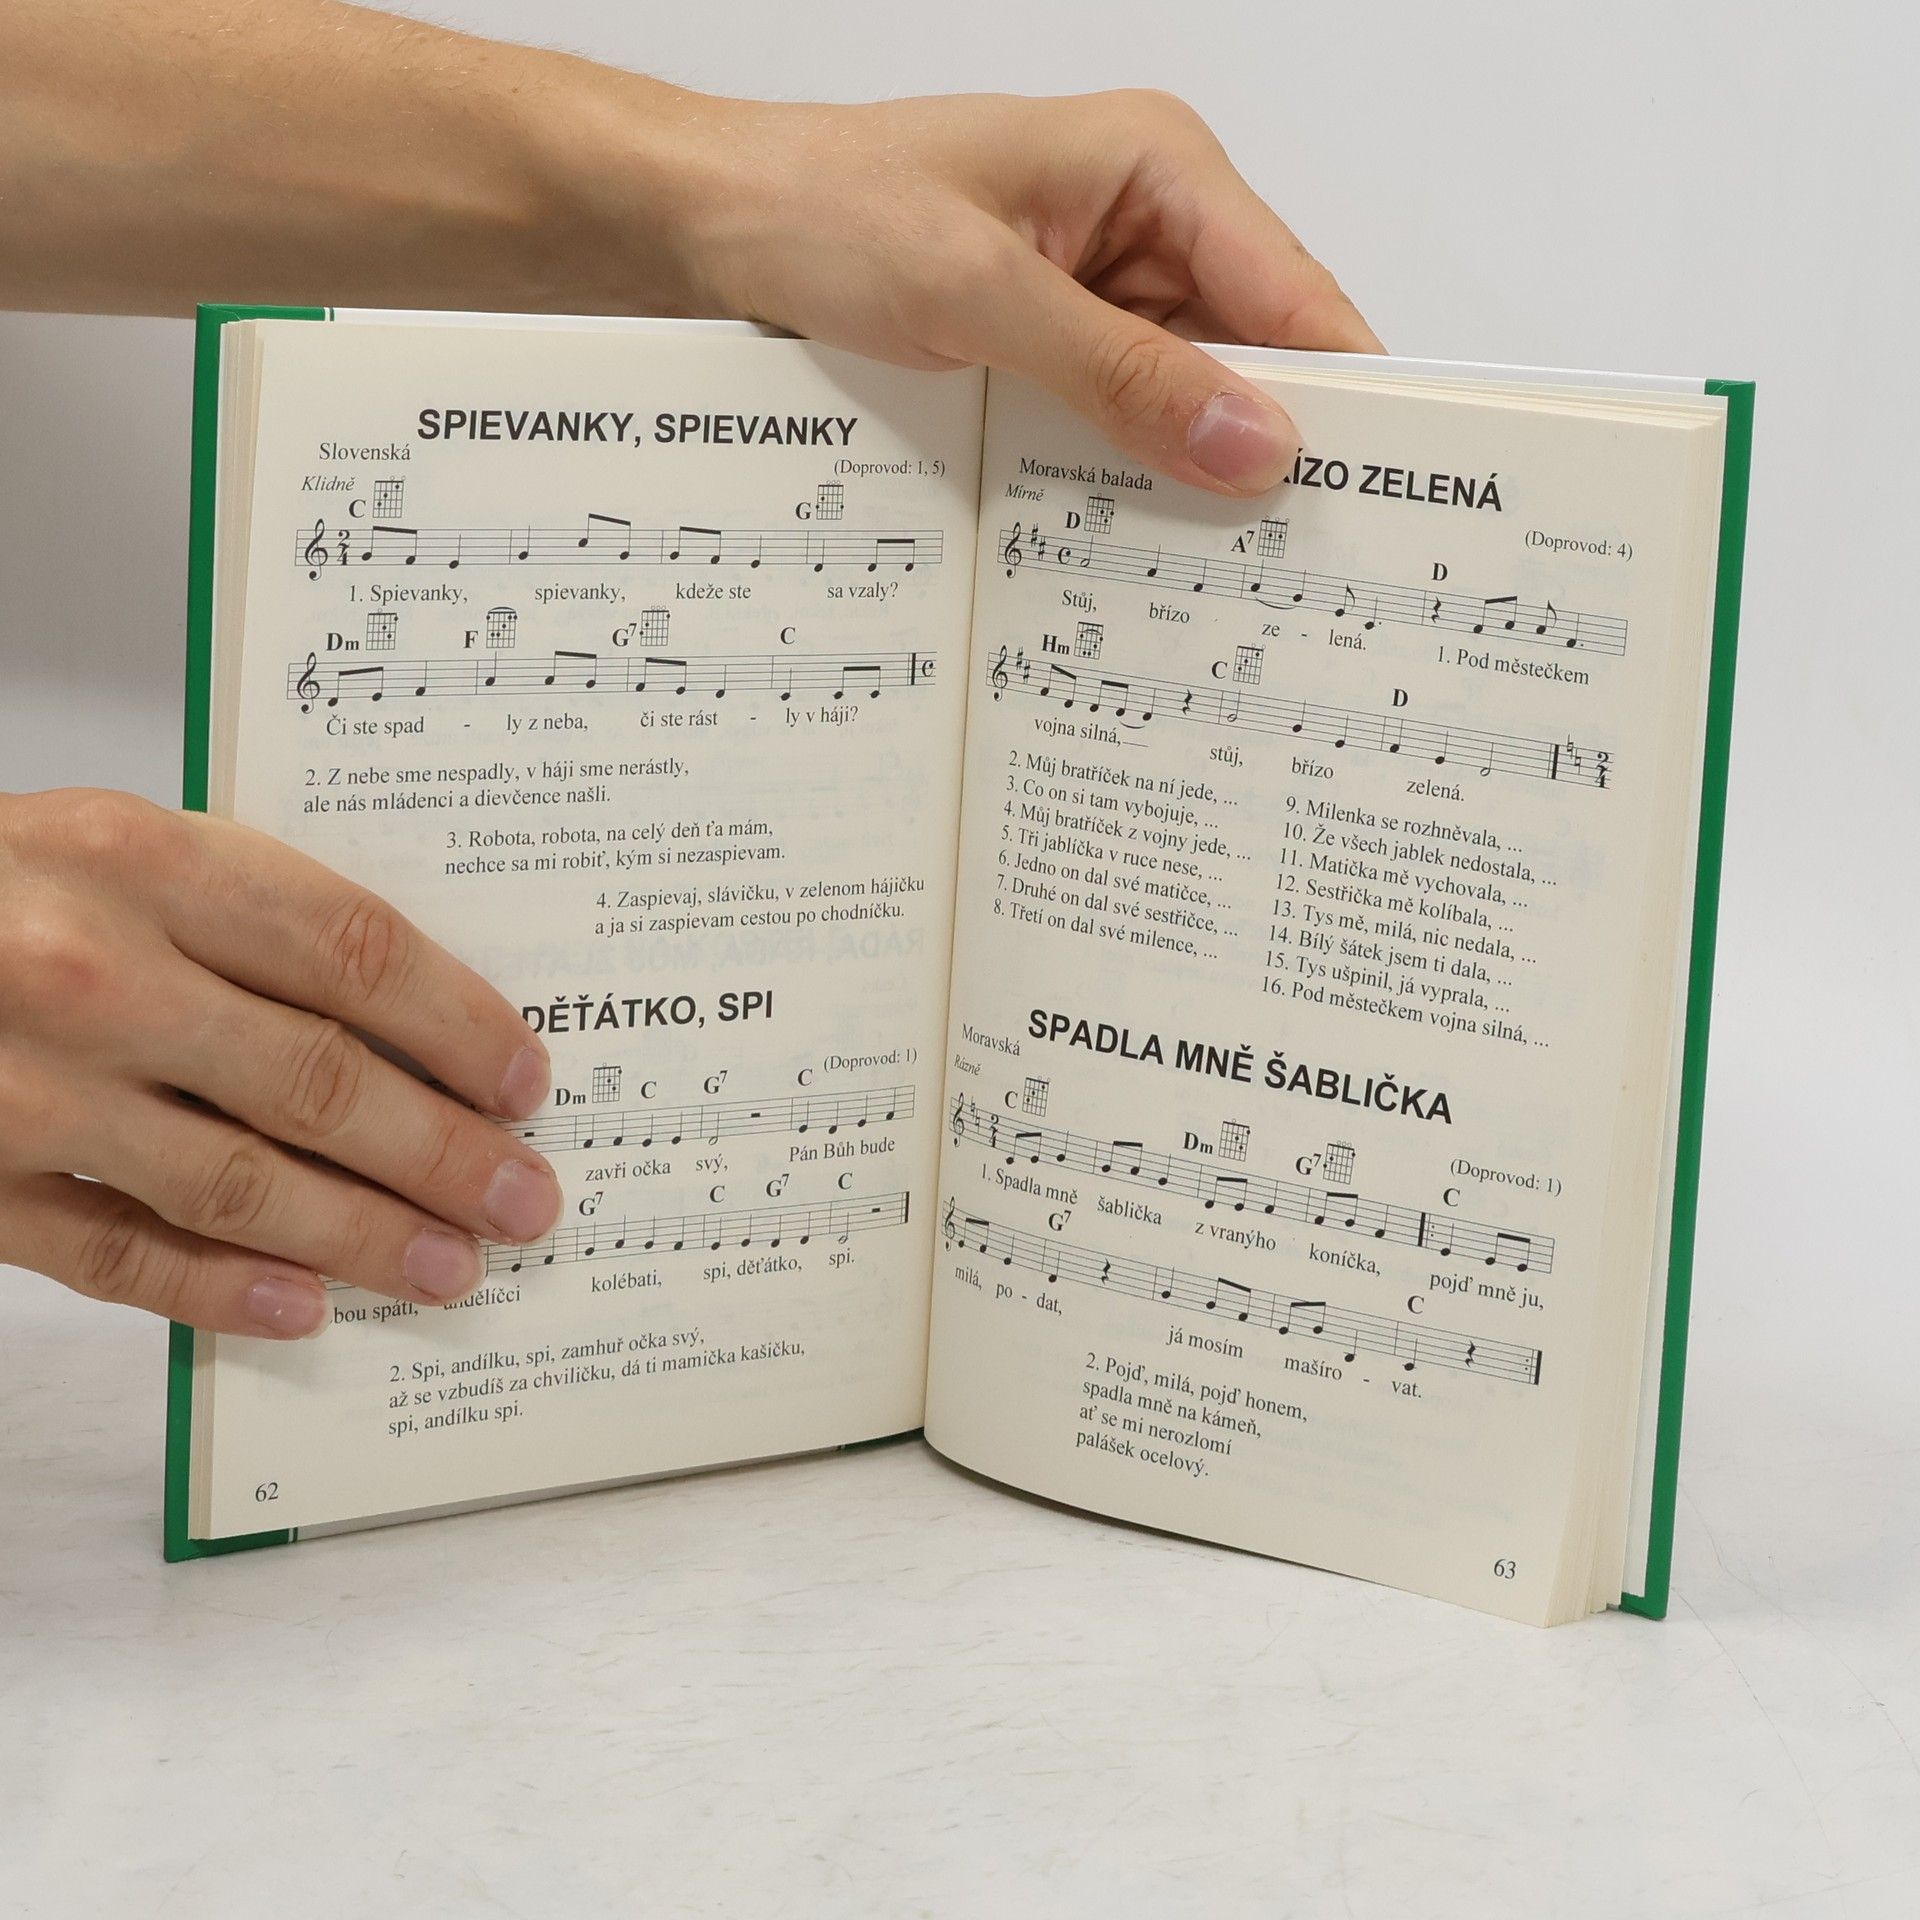 SPIEVANKY, SPIEVANKY
Slovenská
(Doprovod: 1, 5)
Klidně
C G
1. Spievanky, spievanky, kdeže ste sa vzaly?
Dm F G7 C
Či ste spad - ly z neba, či ste rást - ly v háji?
2. Z nebe sme nespadly, v háji sme nerástly,
ale nás mládenci a dievčence našli.
3. Robota, robota, na celý deň ťa mám,
nechce sa mi robiť, kým si nezaspievam.
4. Zaspievaj, slávičku, v zelenom hájičku
a ja si zaspievam cestou po chodníčku.
DĚŤÁTKO, SPI
(Doprovod: 1)
Dm C G7 C
zavři očka svý, Pán Bůh bude
G7 C G7 C
bou spáti, andělíčci kolébati, spi, děťátko, spi.
2. Spi, andílku, spi, zamhuř očka svý,
až se vzbudíš za chviličku, dá ti mamička kašičku,
spi, andílku spi.
62
ŘÍZO ZELENÁ
Moravská balada
(Doprovod: 4)
Mírně
D A7 D
Stůj, břízo ze - lená. 1. Pod městečkem
Hm C D
vojna silná, stůj, břízo zelená.
2. Můj bratříček na ní jede, ...
3. Co on si tam vybojuje, ...
4. Můj bratříček z vojny jede, ...
5. Tři jablíčka v ruce nese, ...
6. Jedno on dal své matičce, ...
7. Druhé on dal své sestřičce, ...
8. Třetí on dal své milence, ...
9. Milenka se rozhněvala, ...
10. Že všech jablek nedostala, ...
11. Matička mě vychovala, ...
12. Sestřička mě kolíbala, ...
13. Tys mě, milá, nic nedala, ...
14. Bílý šátek jsem ti dala, ...
15. Tys ušpinil, já vyprala, ...
16. Pod městečkem vojna silná, ...
SPADLA MNĚ ŠABLIČKA
Moravská
Rázně
(Doprovod: 1)
C Dm G7 C
1. Spadla mně šablička z vranýho koníčka, pojď mně ju,
G7 C
milá, po - dat, já mosím mašíro - vat.
2. Pojď, milá, pojď honem,
spadla mně na kámeň,
ať se mi nerozlomí
palášek ocelový.
63